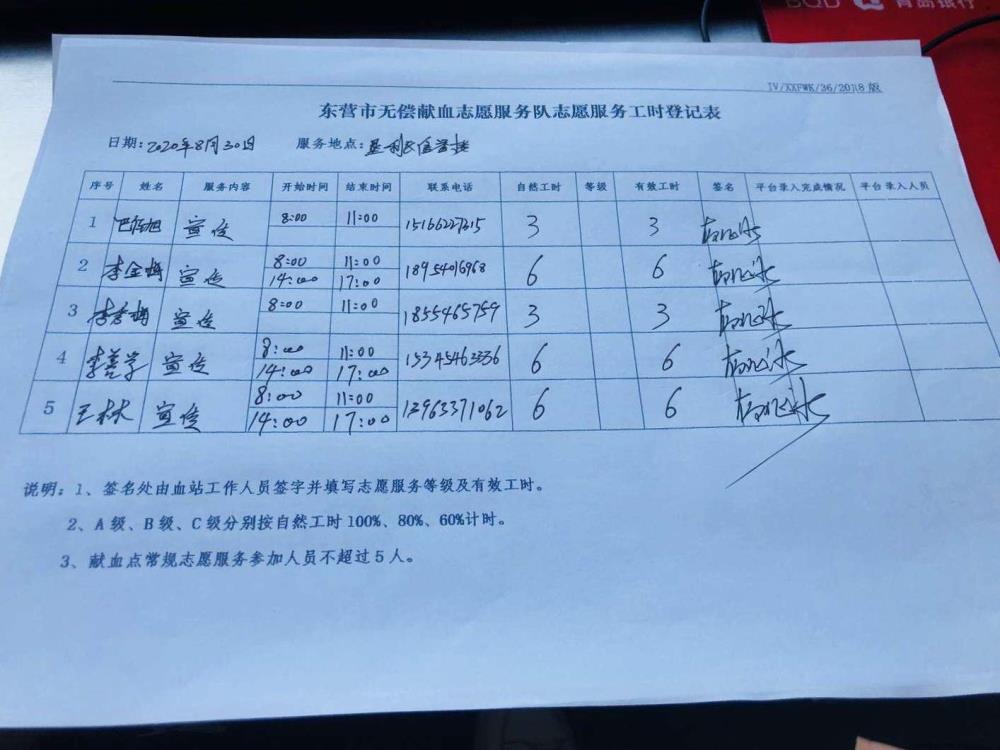 BQD 青岛银行
IV/XXFWK/36/2018版
东营市无偿献血志愿服务队志愿服务工时登记表
日期:2020年8月30日 服务地点:
序号 姓名 服务内容 开始时间 结束时间 联系电话 自然工时 等级 有效工时 签名 平台录入完成情况 平台录入人员
1 宣传 8:00 11:00 15166227315 3 3
2 李金梅 宣传 8:00 11:00 18954016968 6 6
14:00 17:00
3 宣传 8:00 11:00 1855465759 3 3
4 李善学 宣传 8:00 11:00 15345463336 6 6
14:00 17:00
5 王林 宣传 8:00 11:00 13963371062 6 6
14:00 17:00
说明:1、签名处由血站工作人员签字并填写志愿服务等级及有效工时。
2、A级、B级、C级分别按自然工时100%、80%、60%计时。
3、献血点常规志愿服务参加人员不超过5人。